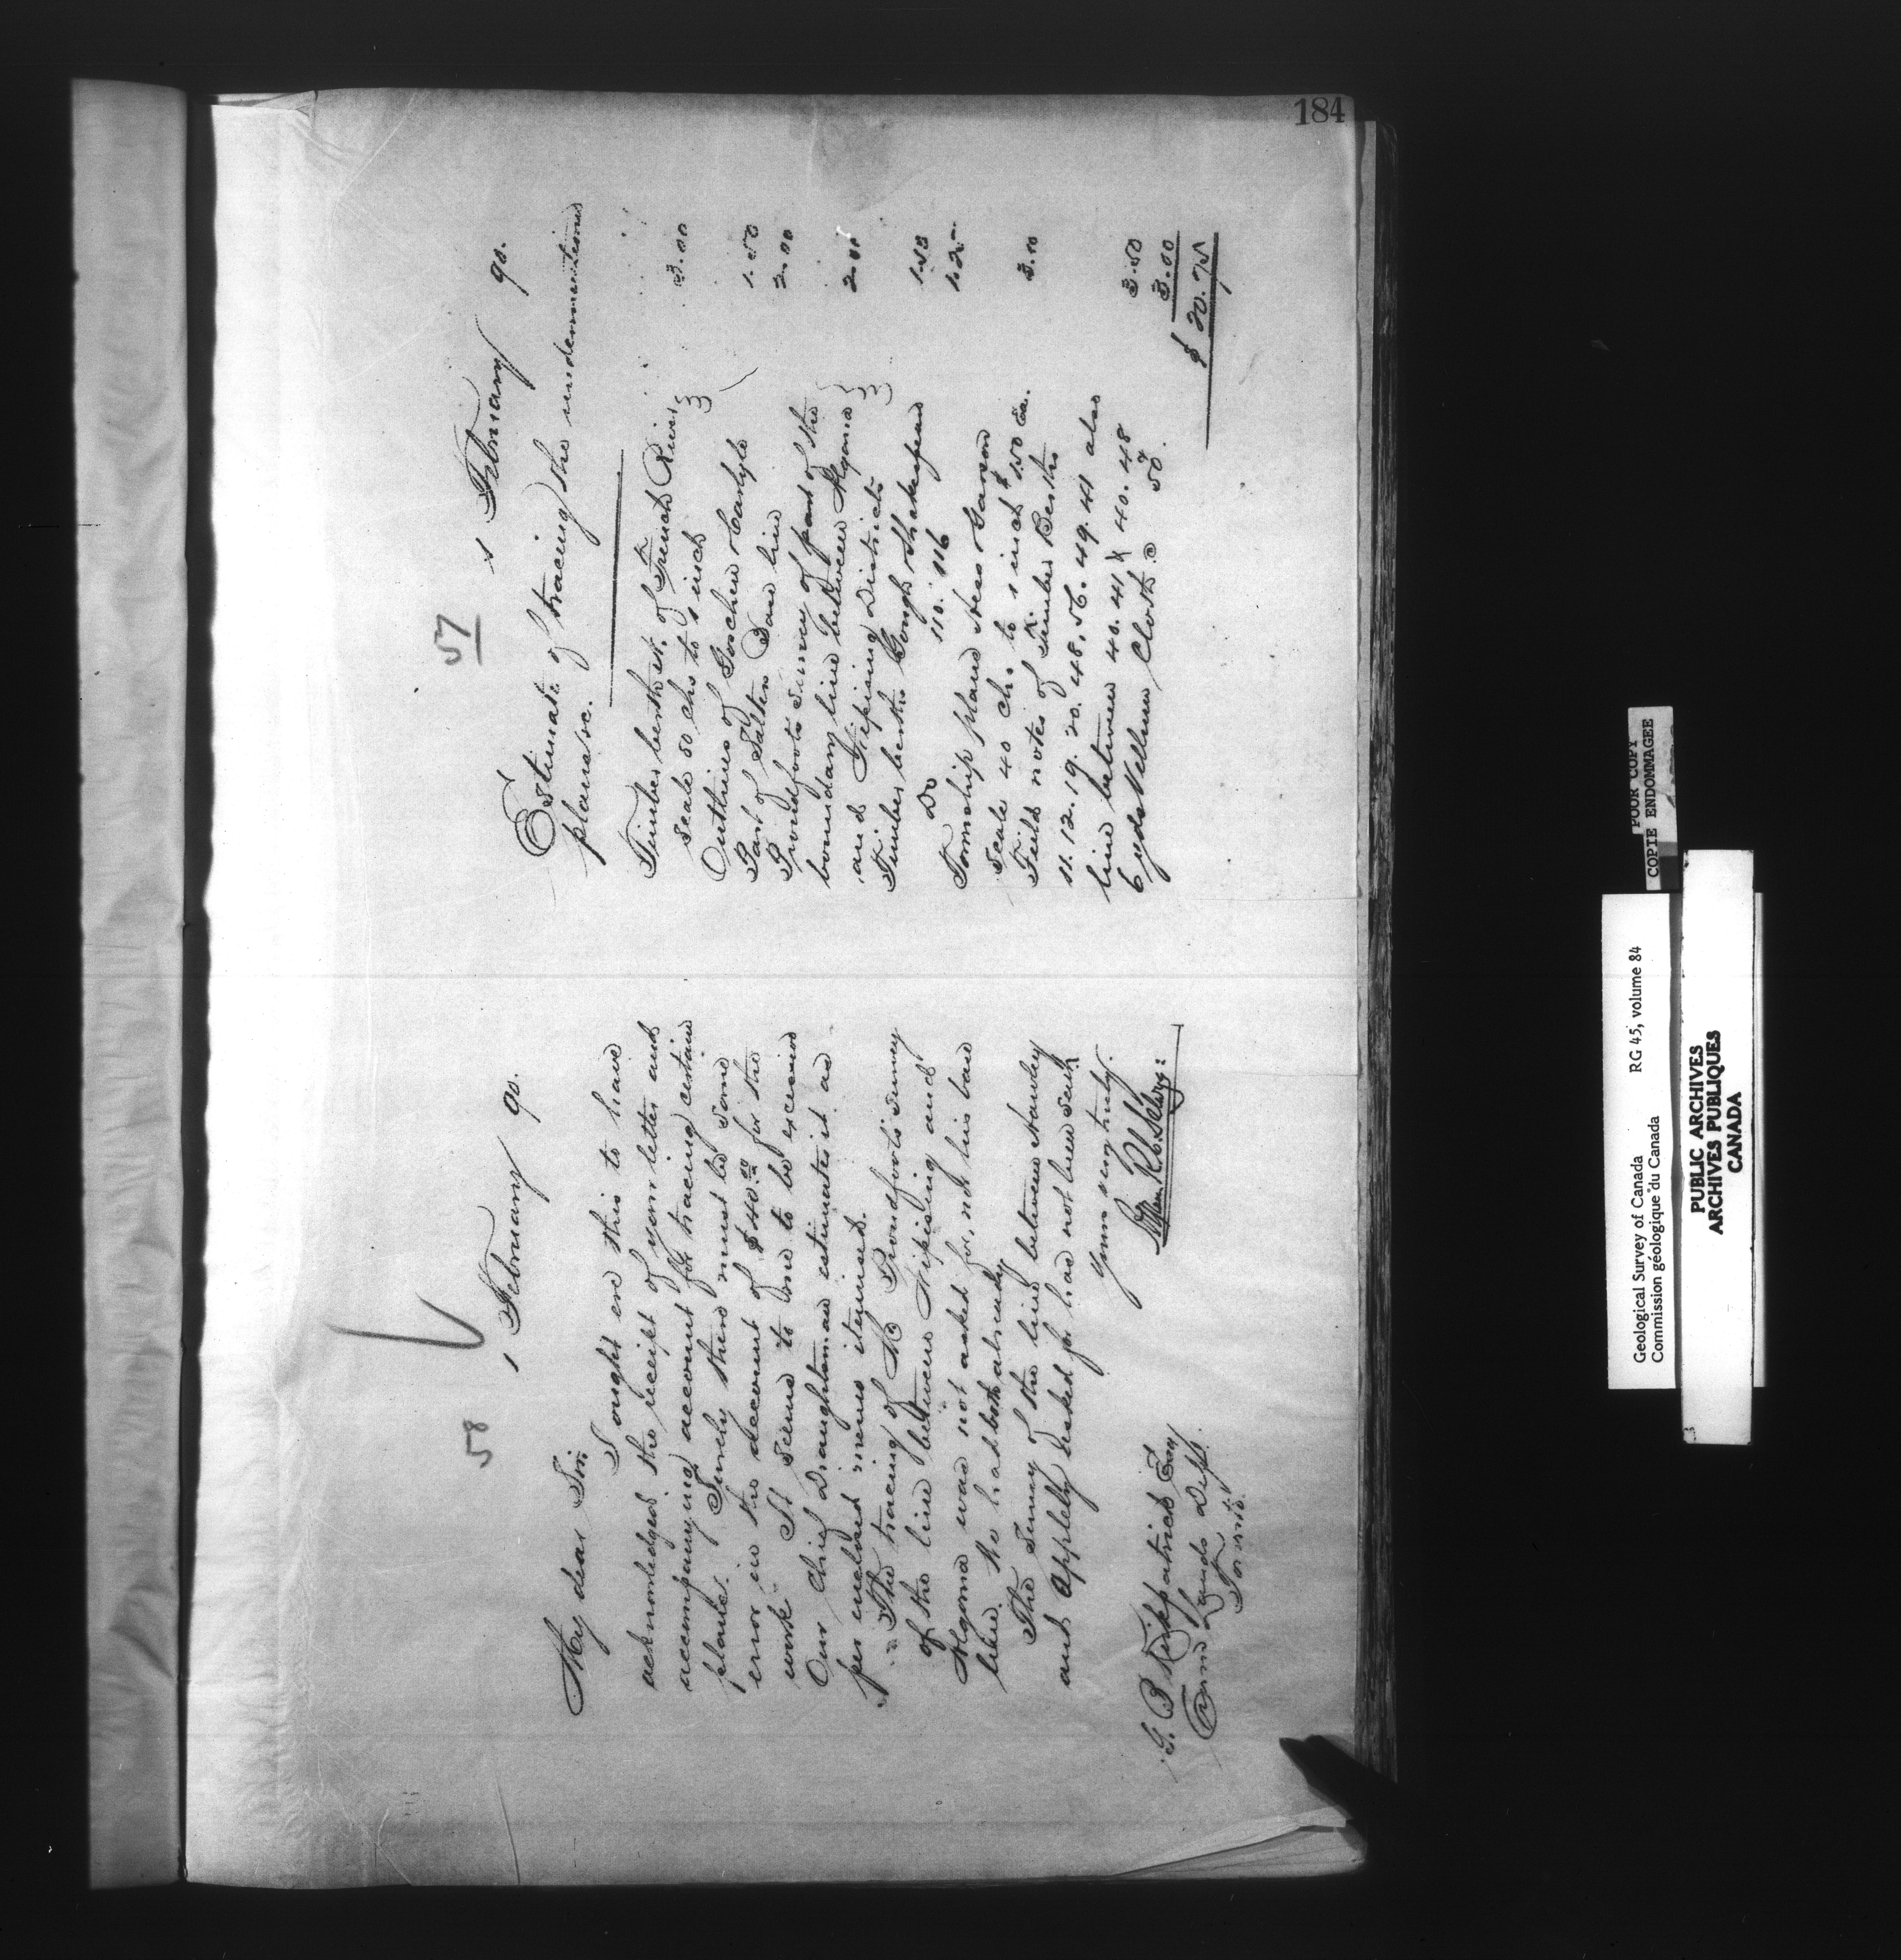 184
58
1 February 90.
My dear Sir
I ought ere this to have
acknowledged the receipt of your letter and
accompanying account for tracing certain
plans. Surely there must be some
error in the account of $40.00 for the
work It seems to me to be excessive
Our Chief Draughtsman estimates it as
per enclosed memo itemised.
The tracing of Mr Proudfoot's survey
of the line between Nipissing and
Algoma was not asked for, nor his base
line. We had both already
The Survey of the line between Hawley
and Appleby asked for has not been sent
Yours very truly.
Alfred R. C. Selwyn
G. B Kirkpatrick Esq
Crown Lands Dept.
Toronto.
57
1 February 90.
Estimate of tracing the undermentioned
plans &c.
Timber berths N. of French River
Scale 80 chs to 1 inch 3.00
Outlines of Goschen Carlyle 1.50
Part of Salter Base line 2.00
Proudfoots survey of part of the
boundary line between Algoma
and Nipissing Districts 2.00
Timber berths Gough Shakespeare 1.50
Do 110. 116 1.25
Township plans Hess Garson
Scale 40 chs. to 1 inch $1.50 Ea. 3.00
Field notes of Timber Berths
11. 12. 19. 20. 48. 56. 49. 41 also
line between 40. 41 & 40. 48 3.50
6 yds Vellum Cloth @ 50 3.00
$20.75
Geological Survey of Canada RG 45, volume 84
Commission géologique du Canada
POOR COPY
COPIE ENDOMMAGEE
PUBLIC ARCHIVES
ARCHIVES PUBLIQUES
CANADA